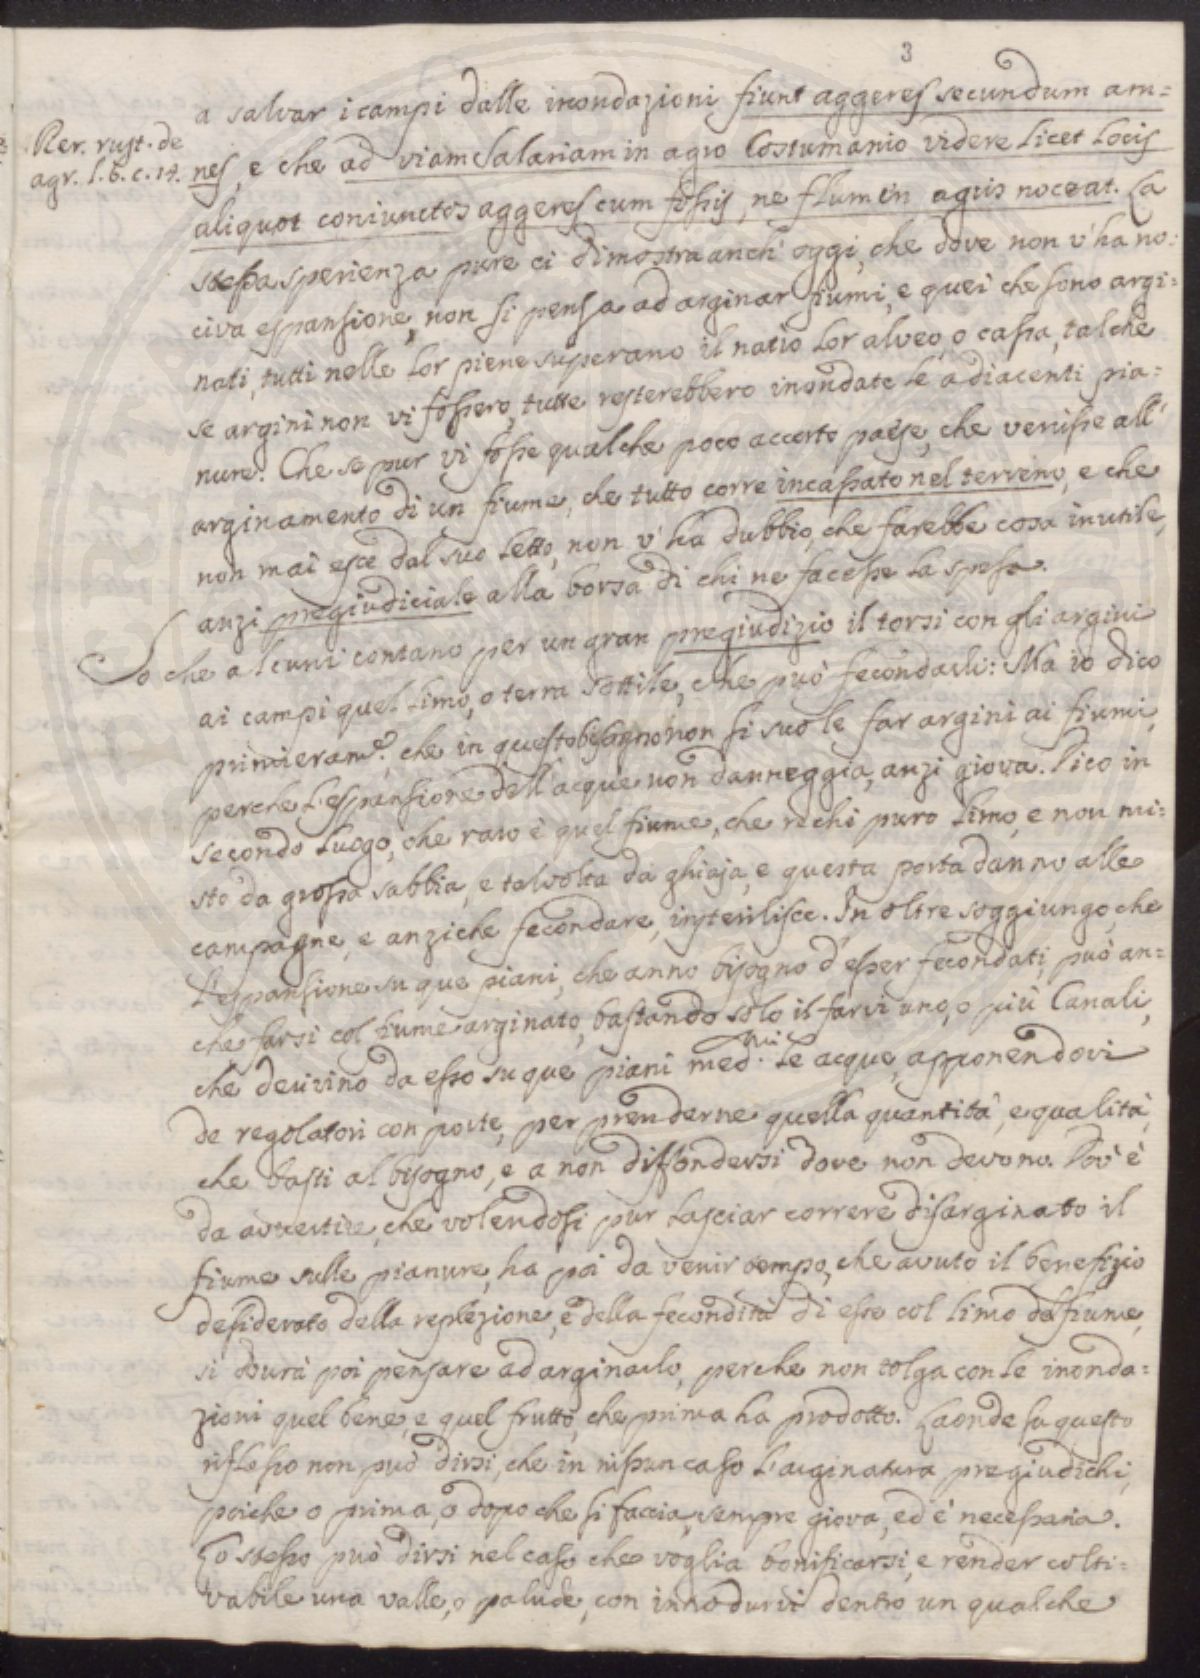 3
a salvar i campi dalle inondazioni fiunt aggeres secundum am=
Rer. rust. de
agr. l. 6. c. 14.
nes, e che ad viam Salariam in agro Costumanio videre licet locis
aliquot coniunctos aggeres cum fossis, ne flumen agris noceat. La
stessa sperienza pure ci dimostra anch' oggi, che dove non v'ha no:
civa espansione, non si pensa ad arginar fiumi, e quei che sono argi:
nati, tutti nelle lor piene superano il natio lor alveo, o cassa, talche
se argini non vi fossero, tutte resterebbero inondate le adiacenti pia:
nure. Che se pur vi fosse qualche poco accorto paese, che venisse all'
arginamento di un fiume, che tutto corre incassato nel terreno, e che
non mai esce dal suo letto, non v'ha dubbio, che farebbe cosa inutile,
anzi pregiudiciale alla borsa di chi ne facesse la spesa.
So che alcuni contano per un gran pregiudizio il torsi con gli argini
ai campi quel limo, o terra sottile, che può fecondarli: Ma io dico
primieram.e che in questo bisogno non si suole far argini ai fiumi,
perche l'espansione dell'acque non danneggia, anzi giova. Dico in
secondo luogo, che raro è quel fiume, che rechi puro limo, e non mi:
sto da grossa sabbia, e talvolta da ghiaja, e questa porta danno alle
campagne, e anziche fecondare, insterilisce. In oltre soggiungo, che
l'espansione su que piani, che anno bisogno d'esser fecondati, può an=
che farsi col fiume arginato, bastando solo il farvi uno, o più Canali,
che derivino da esso su que piani med.mi le acque, apponendovi
de regolatori con porte, per prenderne quella quantità, e qualità,
che basti al bisogno, e a non diffondersi dove non devono. Poi è
da avvertire, che volendosi pur lasciar correre disarginato il
fiume sulle pianure, ha poi da venir tempo, che avuto il benefizio
desiderato della replezione, e della fecondità di esse col limo del fiume,
si dovrà poi pensare ad arginarlo, perche non tolga con le inonda=
zioni quel bene, e quel frutto, che prima ha prodotto. Laonde su questo
riflesso non può dirsi, che in nissun caso l'arginatura pregiudichi,
poiche o prima, o dopo che si faccia, sempre giova, ed è necessaria.
Lo stesso può dirsi nel caso che voglia bonificarsi, e render colti:
vabile una valle, o palude, con introdurvi dentro un qualche